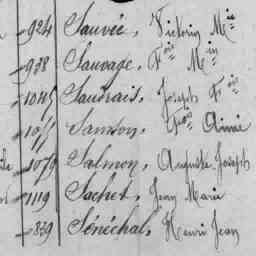 924 Sauvée, Victorin Mie
938 Sauvage, Fois Min
1045 Saudrais, Joseph Fois
1055 Samson, Fois Aimé
1079 Salmon, Auguste Joseph
1119 Sachet, Jean Marie
839 Sénéchal, Henri Jean